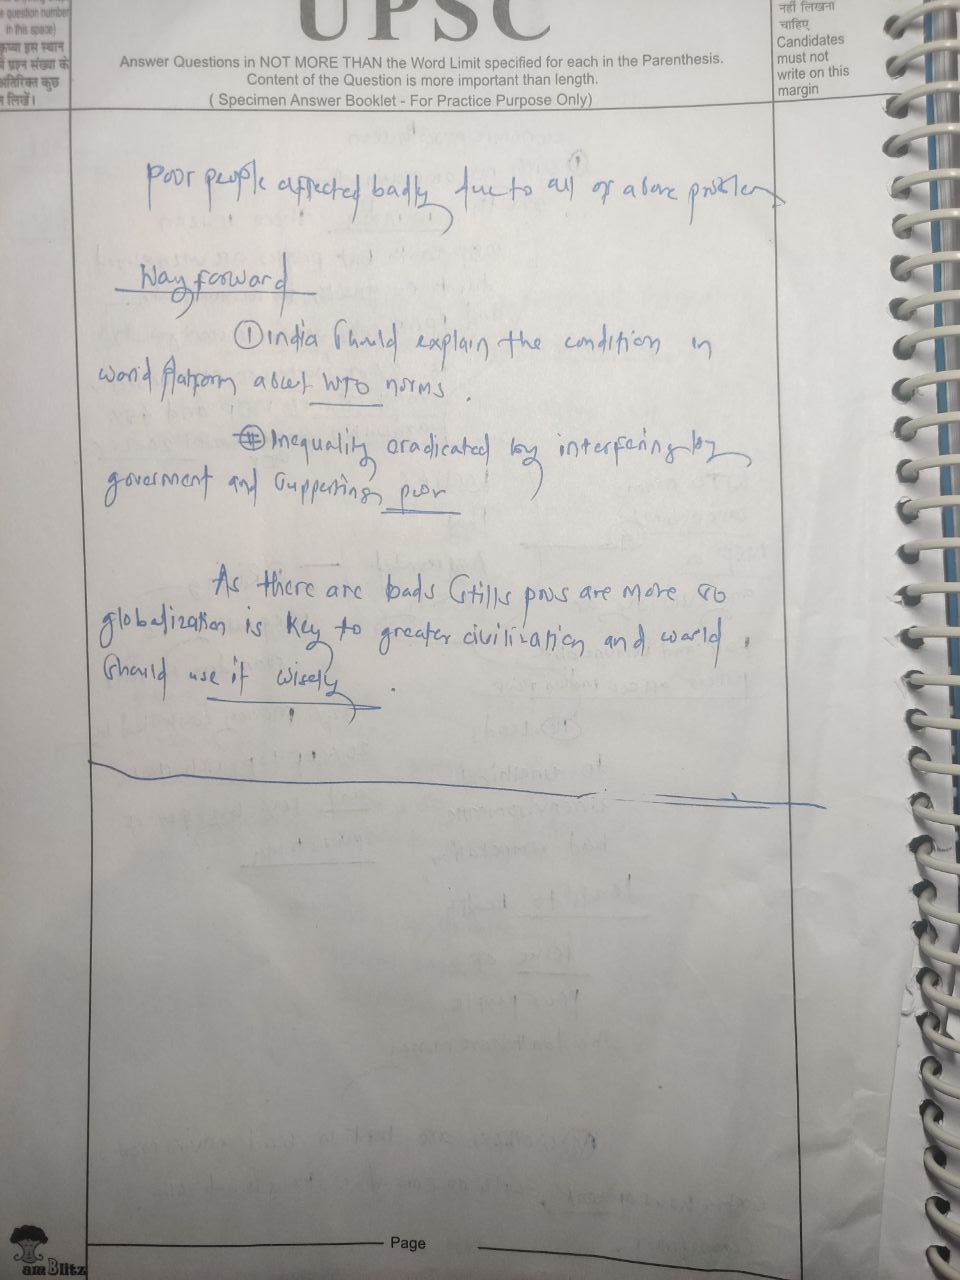 e question number
in this space)
कृपया इस स्थान
में प्रश्न संख्या के
अतिरिक्त कुछ
न लिखें।
UPSC
Answer Questions in NOT MORE THAN the Word Limit specified for each in the Parenthesis.
Content of the Question is more important than length.
( Specimen Answer Booklet - For Practice Purpose Only)
नहीं लिखना
चाहिए
Candidates
must not
write on this
margin
Poor people affected badly due to all of above problem
Way forward
① India should explain the condition in
world platform about WTO norms .
Inequality eradicated by interfering by
goverment and supporting poor
As there are bads stills pros are more so
globalization is key to greater civilization and world
should use it wisely .
Page
amBlitz